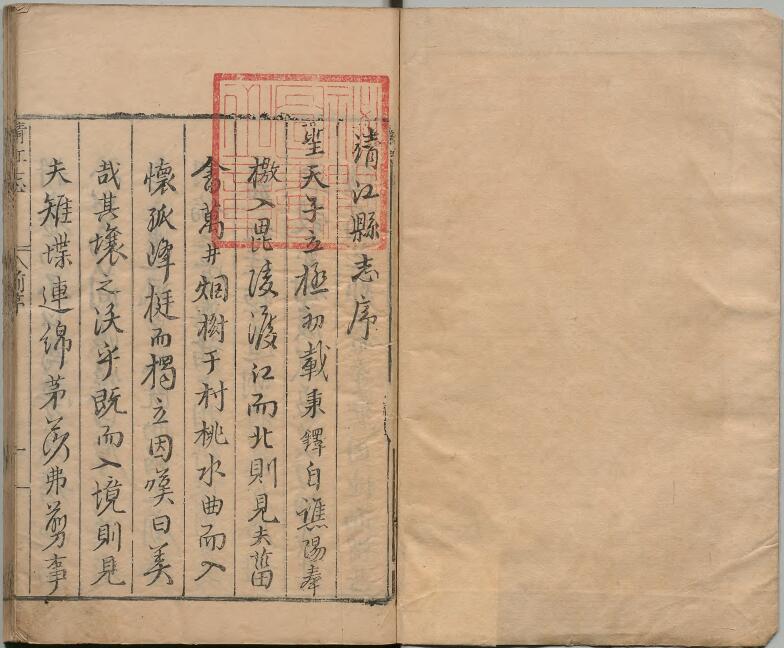 靖江縣志序
聖天子立極初載秉鐸自譙陽奉
檄入毘陵渡江而北則見夫菑
畬萬井烟樹千村桃水曲而入
懷孤峰挺而獨立因嘆曰美
哉其壤之沃乎既而入境則見
夫雉堞連綿茅茨弗剪事
靖江志
前序
一